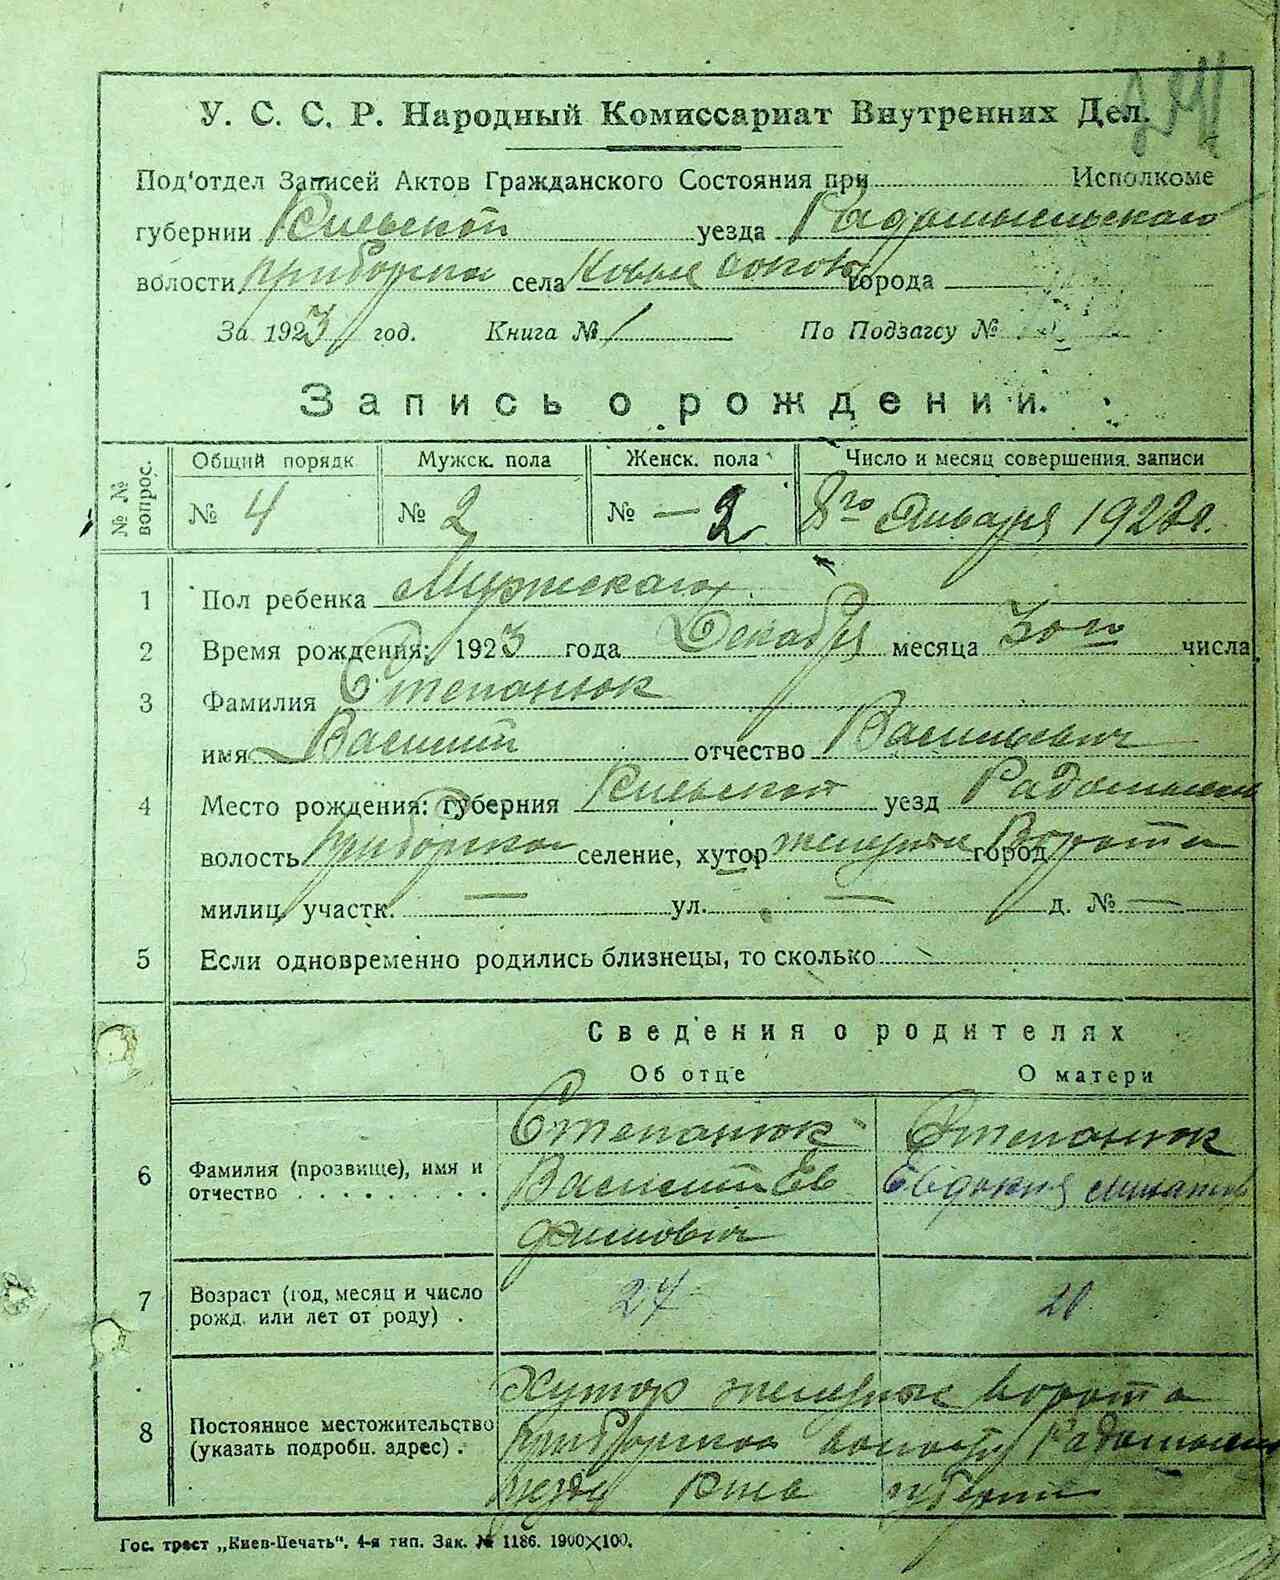 У. С. С. Р. Народный Комиссариат Внутренних Дел.
Под'отдел Записей Актов Гражданского Состояния при Исполкоме
губернии Киевской уезда Радомысльскаго
волости Приборской села Новые города
За 1923 год. Книга № 1 По Подзагсу №
Запись о рождении.
№ № вопрос. Общий порядк Мужск. пола Женск. пола Число и месяц совершения записи
№ 4 № 2 № — 2 8го Января 1922 г.
1 Пол ребенка Мужскаго
2 Время рождения: 1923 года Декабря месяца 30го числа
3 Фамилия Степанюк
имя Василий отчество Васильевич
4 Место рождения: губерния Киевской уезд Радомысль
волость Приборской селение, хутор железные город Ворота
милиц. участк. — ул. — д. № —
5 Если одновременно родились близнецы, то сколько
Сведения о родителях
Об отце О матери
6 Фамилия (прозвище), имя и отчество
Степанюк Степанюк
Василий Ев Евдокия
фимович
7 Возраст (год, месяц и число рожд. или лет от роду) . 24 20
8 Постоянное местожительство (указать подробн. адрес) .
Хутор железные ворота
Приборской волости Радомысль
уезду Киев губернии
Гос. трест „Киев-Печать". 4-я тип. Зак. № 1186. 1900×100.